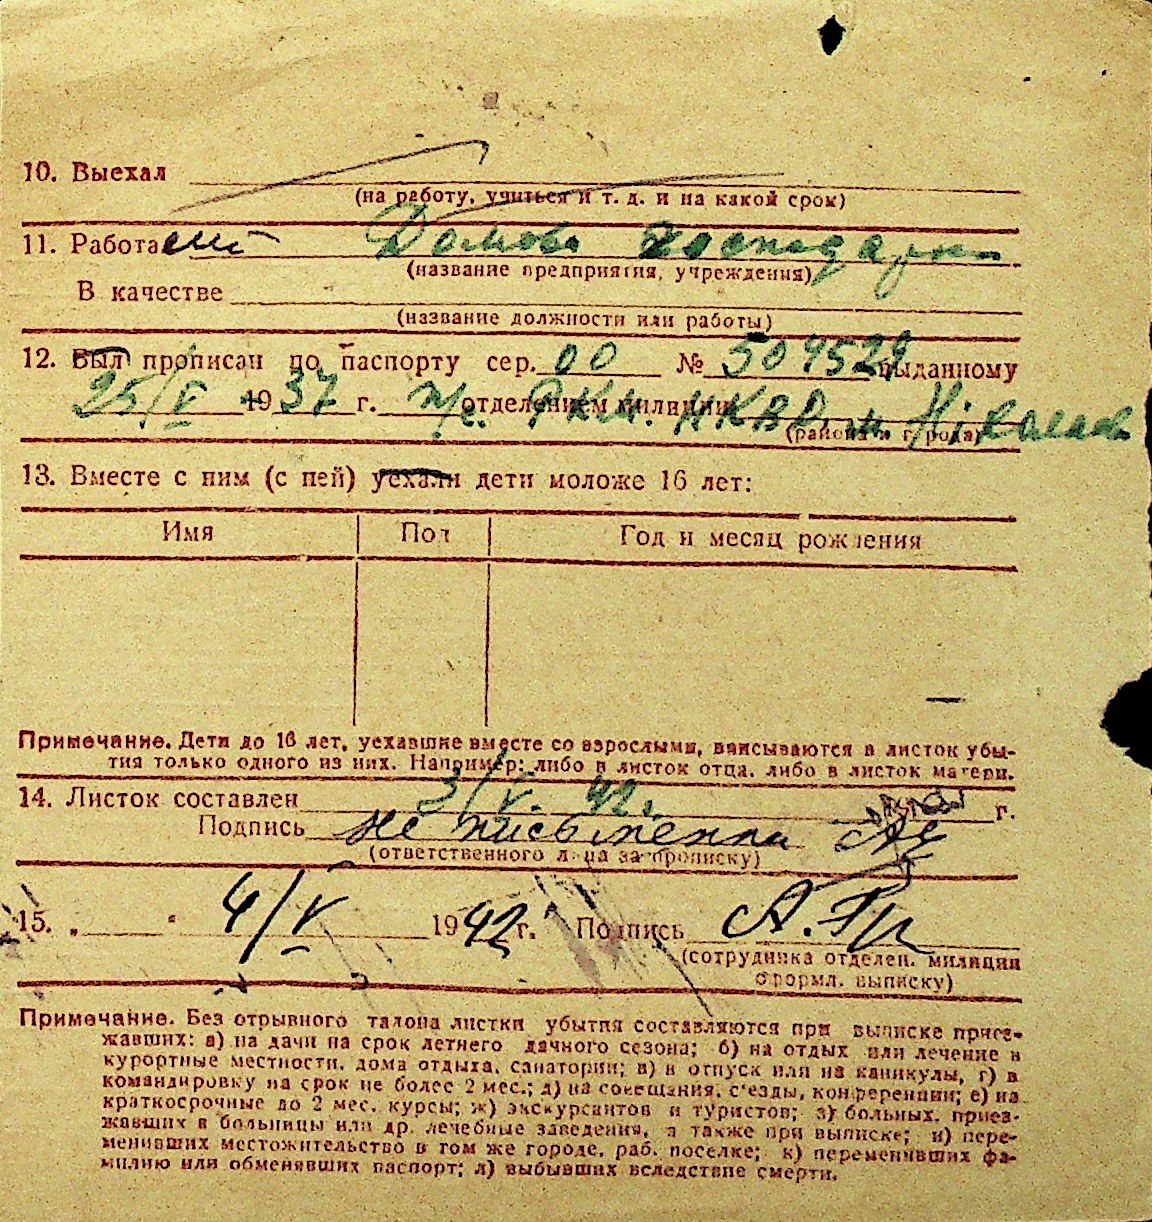 10. Выехал
(на работу, учиться и т. д. и на какой срок)
11. Работает Домове господарст
(название предприятия, учреждения)
В качестве
(название должности или работы)
12. Был прописан по паспорту сер. 00 № 504529 выданному
25/V 1937 г. отделением милиции РКМ. НКВД м Ніколаев
(района и города)
13. Вместе с ним (с ней) уехали дети моложе 16 лет:
Имя Пол Год и месяц рождения
Примечание. Дети до 16 лет, уехавшие вместе со взрослыми, вписываются в листок убы-
тия только одного из них. Например: либо в листок отца, либо в листок матери.
14. Листок составлен 3/V. 42 г. г.
Подпись не письменна
(ответственного лица за прописку)
15. „ “ 4/V 1942 г. Подпись
(сотрудника отделен. милиции
оформл. выписку)
Примечание. Без отрывного талона листки убытия составляются при выписке приез-
жавших: а) на дачи на срок летнего дачного сезона; б) на отдых или лечение в
курортные местности, дома отдыха, санатории; в) в отпуск или на каникулы, г) в
командировку на срок не более 2 мес.; д) на совещания, с'езды, конференции; е) на
краткосрочные до 2 мес. курсы; ж) экскурсантов и туристов; з) больных, приез-
жавших в больницы или др. лечебные заведения, а также при выписке; и) пере-
менивших местожительство в том же городе, раб. поселке; к) переменивших фа-
милию или обменявших паспорт; л) выбывших вследствие смерти.